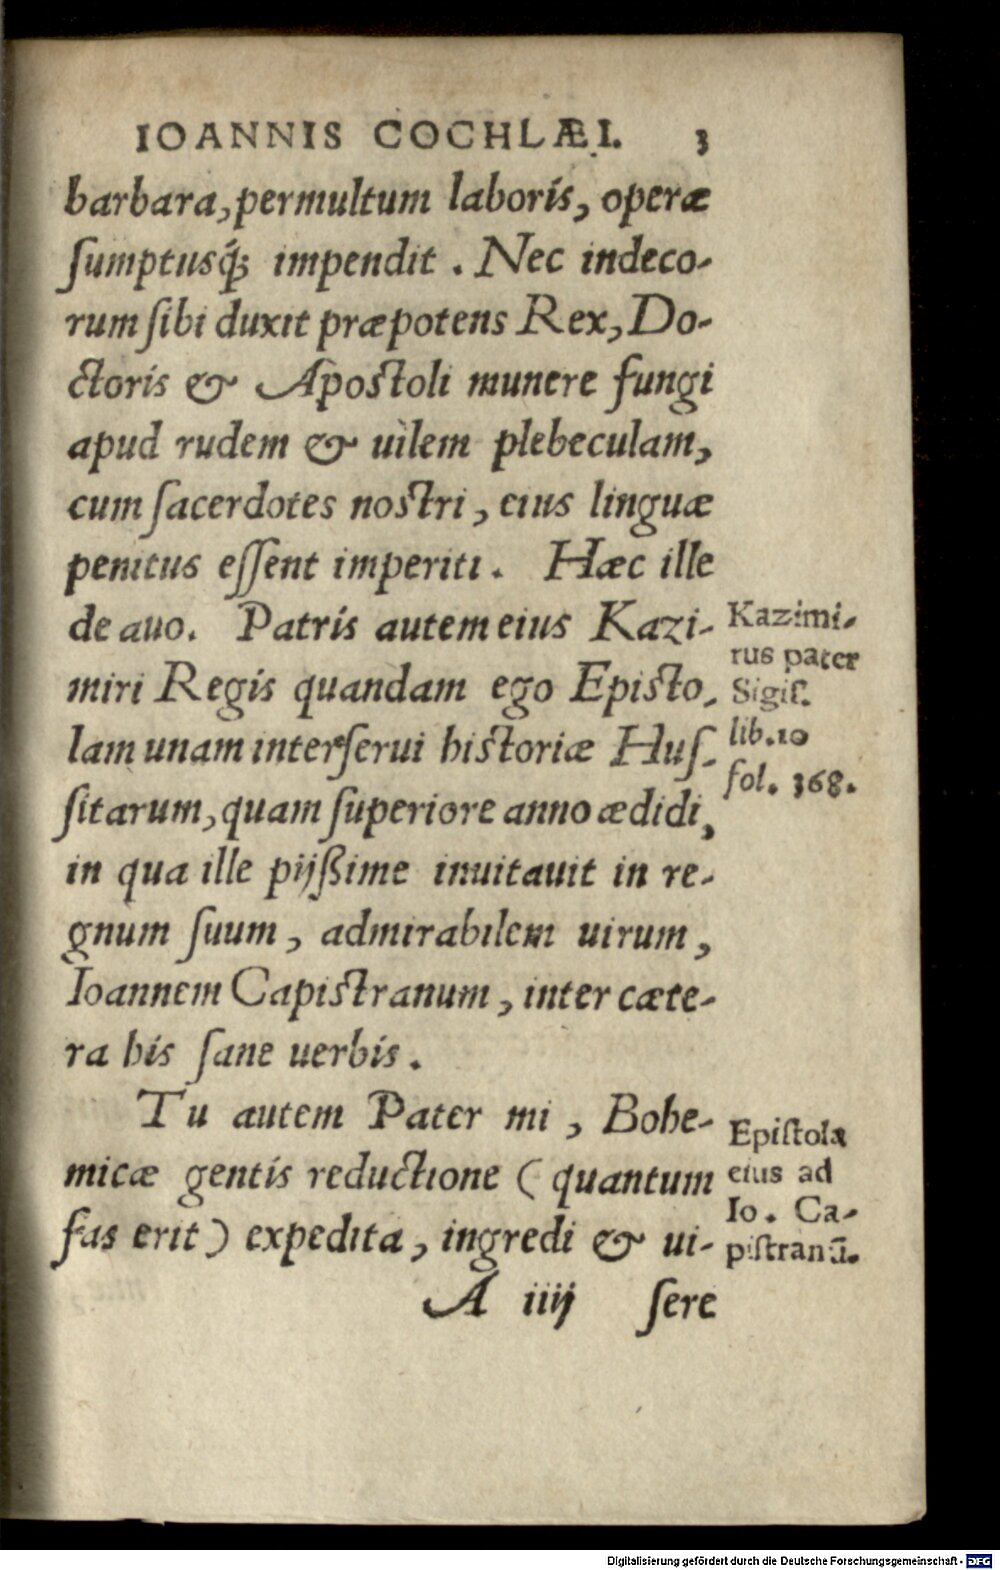 IOANNIS COCHLÆI. 3
barbara, permultum laboris, operæ
ſumptusq́; impendit. Nec indeco-
rum ſibi duxit præpotens Rex, Do-
ctoris & Apoſtoli munere fungi
apud rudem & uilem plebeculam,
cum ſacerdotes noſtri, eius linguæ
penitus eſſent imperiti. Hæc ille
de auo. Patris autem eius Kazi-
miri Regis quandam ego Epiſto-
lam unam interſerui hiſtoriæ Huſ-
ſitarum, quam ſuperiore anno ædidi,
in qua ille pijßime inuitauit in re-
gnum ſuum, admirabilem uirum,
Ioannem Capiſtranum, inter cæte-
ra his ſane uerbis.
Kazimi-
rus pater
Sigiſ.
lib.10
fol. 368.
Tu autem Pater mi, Bohe-
micæ gentis reductione (quantum
fas erit) expedita, ingredi & ui-
Epiſtola
eius ad
Io. Ca-
piſtranū.
A iiij ſere
Digitalisierung gefördert durch die Deutsche Forschungsgemeinschaft - DFG